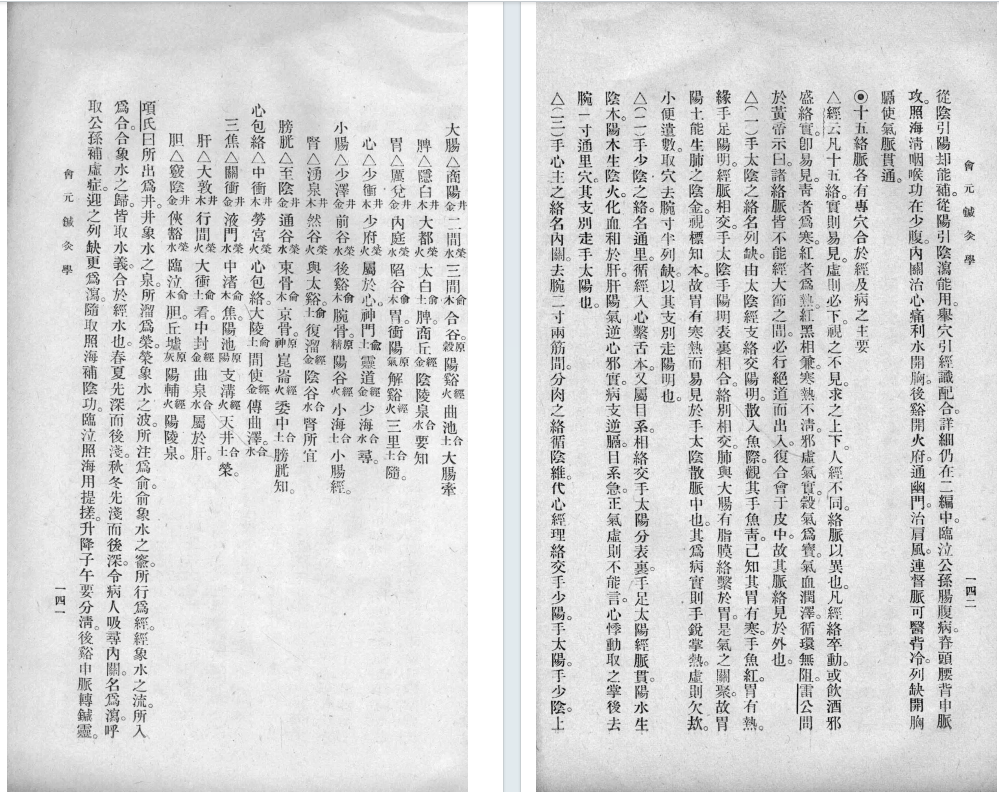 大腸△商陽井金二間榮水三間俞木合谷原穀陽谿經火曲池合土大腸牽
脾△隱白井木大都榮火太白俞土脾商丘經金陰陵泉合水要知
胃△厲兌井金內庭榮水陷谷俞木胃衝陽原氣解谿經火三里合土隨。
心△少衝井木少府榮火屬於心神門俞土靈道經金少海合水尋
小腸△少澤井金前谷榮水後谿俞木腕骨原精陽谷經火小海合土小腸經
腎△湧泉井木然谷榮火與太谿俞土復溜經金陰谷合水腎所宜
膀胱△至陰井金通谷榮水束骨俞木京骨原神崑崙經火委中合土膀胱知。
心包絡△中衝井木勞宮榮火心包絡大陵俞土間使經金傳曲澤合水
三焦△關衝井金液門榮水中渚俞木焦陽池原陽支溝經火天井合土榮。
肝△大敦井木行間榮火大衝俞土看中封經金曲泉合水屬於肝
胆△竅陰井金俠谿榮水臨泣俞木胆丘墟原灰陽輔經火陽陵泉合
項氏曰所出爲井井象水之泉所溜爲榮榮象水之波所注爲俞俞象水之竅所行爲經經象水之流所入
爲合合象水之歸皆取水義合於經水也春夏先深而後淺秋冬先淺而後深令病人吸尋內關名爲瀉呼
取公孫補虛症迎之列缺更爲瀉隨取照海補陰功臨泣照海用提搓升降子午要分清後谿申脈轉鍼靈。
會元鍼灸學
一四一
會元鍼灸學
一四二
從陰引陽却能補從陽引陰瀉能用舉穴引經識配合詳細仍在二編中臨泣公孫腸腹病脊頭腰背申脈
攻照海清咽喉功在少腹內關治心痛利水開胸後谿開火府通幽門治肩風連督脈可醫背冷列缺開胸
膈使氣脈貫通。
◉十五絡脈各有專穴合於經及病之主要
△經云凡十五絡實則易見虛則必下視之不見求之上下人經不同絡脈以異也凡經絡卒動或飲酒邪
盛絡實卽易見青者爲寒紅者爲熱紅黑相兼寒熱不清邪虛氣實穀氣爲寶氣血潤澤循環無阻雷公問
於黃帝示曰諸絡脈皆不能經大節之間必行絕道而出入復合會于皮中故其脈絡見於外也
△(一)手太陰之絡名列缺由太陰經支絡交陽明散入魚際觀其手魚青已知其胃有寒手魚紅胃有熱。
緣手足陽明經脈相交手太陰手陽明表裏相合絡別相交肺與大腸有脂膜絡繫於胃是氣之關聚故胃
陽土能生肺之陰金視標知本故胃有寒熱而易見於手太陰散脈中也其爲病實則手銳掌熱虛則欠欬
小便遺數取穴去腕寸半列缺以其支別走陽明也
△(二)手少陰之絡名通里循經入心繫舌本又屬目系相絡交手太陽分表裏手足太陽經脈貫陽水生
陰木陽木生陰火化血和於肝肝陽氣逆心邪實病支逆膈目系急正氣虛則不能言心悸動取之掌後去
腕一寸通里穴其支別走手太陽也
△(三)手心主之絡名內關去腕二寸兩筋間分肉之絡循陰維代心經理絡交手少陽手太陽手少陰上